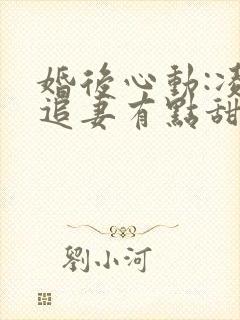 婚後心動:凌
追妻有點甜
劉小河